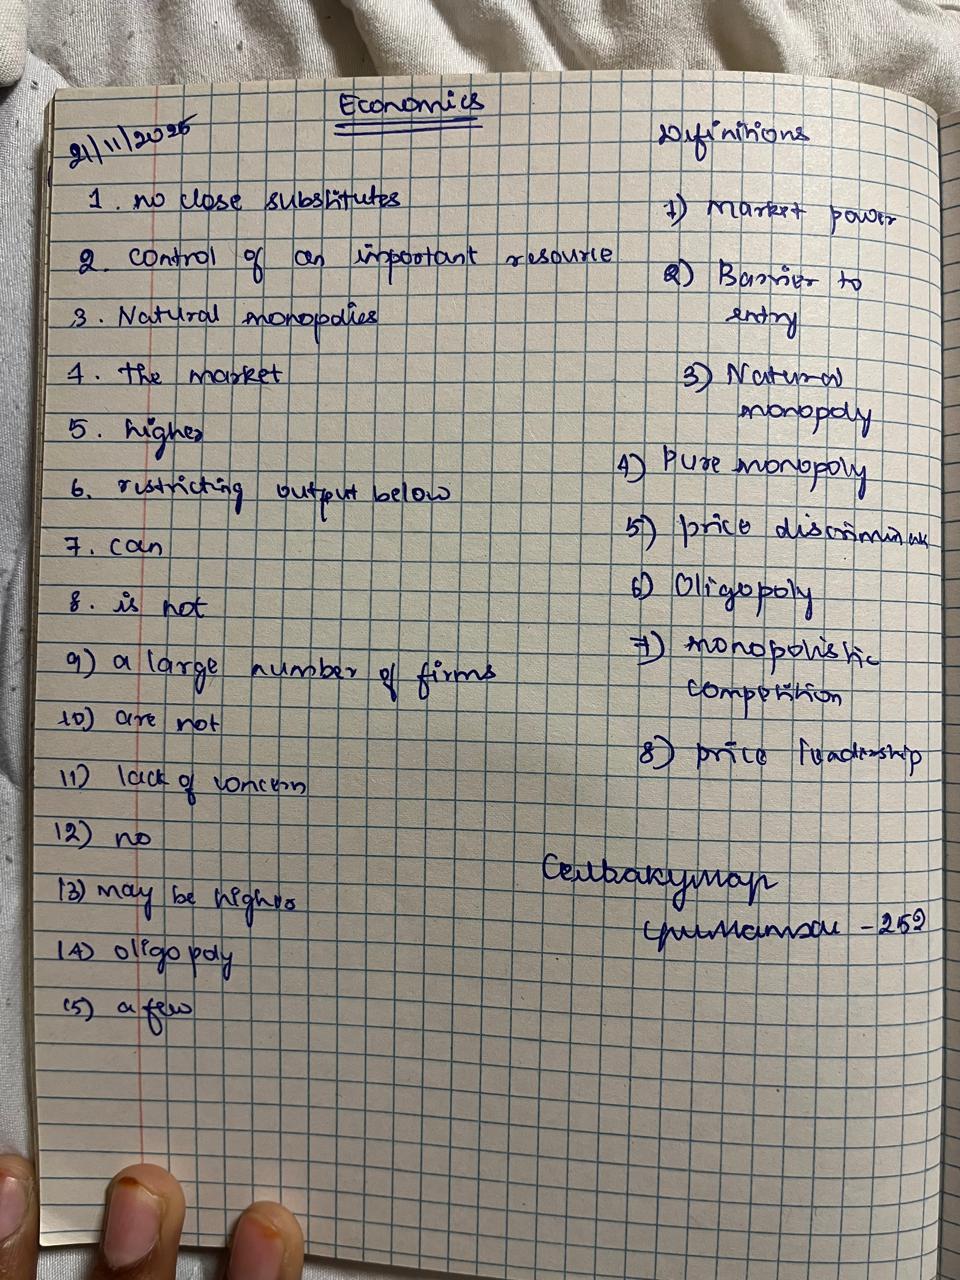 Economics
21/11/2025
1. no close substitutes
2. control of an important resource
3. Natural monopolies
4. the market
5. higher
6. restricting output below
7. can
8. is not
9) a large number of firms
10) are not
11) lack of concern
12) no
13) may be higher
14) oligopoly
15) a few
Definitions
1) Market power
2) Barrier to
entry
3) Natural
monopoly
4) Pure monopoly
5) price
6) Oligopoly
7) monopolistic
competition
8) price leadership
Селвакумар
- 252